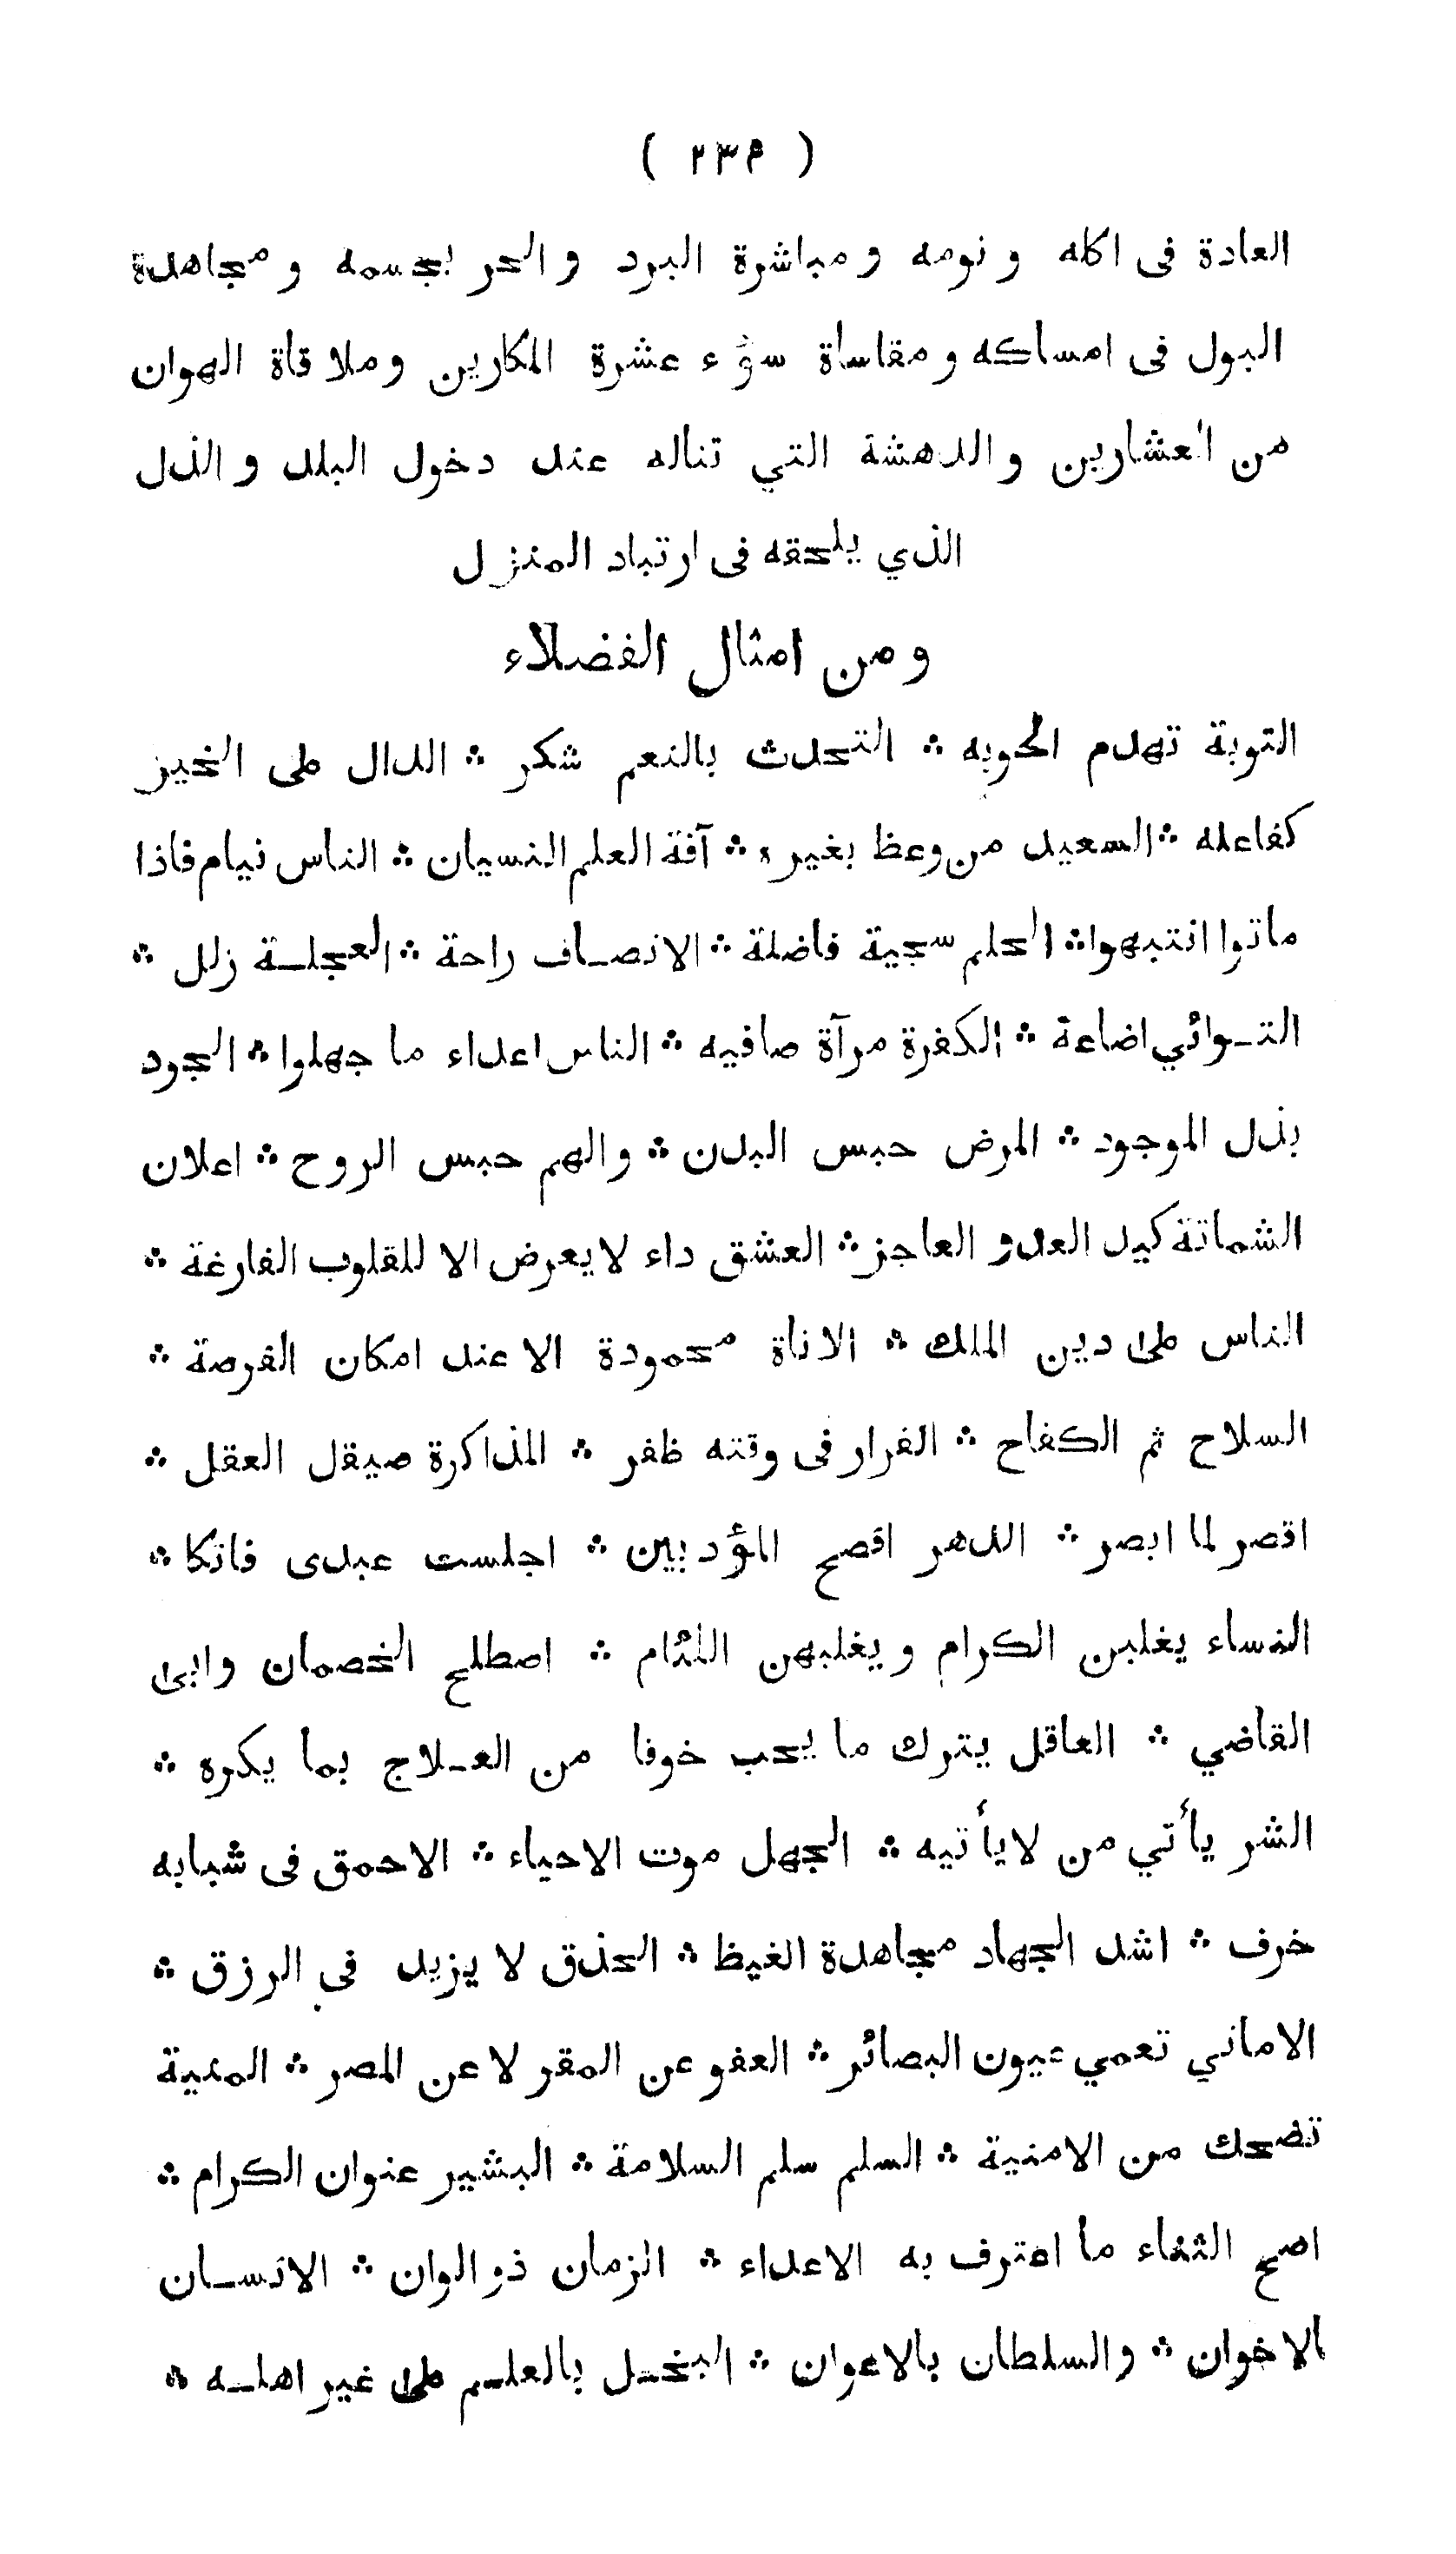 ( ٢٣٩ )
العادة فى اكله و نومه و مباشرة البرد و الحر بجسمه و مجاهدة
البول فى امساكه و مقاساة سؤء عشرة المكارين و ملاقاة الهوان
من العشارين و الدهشة التي تناله عند دخول البلد و الذل
الذي يلحقه فى ارتياد المنزل
و من امثال الفضلاء
التوبة تهدم الحوبه ⁂ التحدث بالنعم شكر ⁂ الدال على الخير
كفاعله ⁂ السعيد من وعظ بغيره ⁂ آفة العلم النسيان ⁂ الناس نيام فاذا
ماتوا انتبهوا ⁂ الحلم سجية فاضلة ⁂ الانصاف راحة ⁂ العجلة زلل ⁂
التوائي اضاعة ⁂ الكفرة مرآة صافيه ⁂ الناس اعداء ما جهلوا ⁂ الجود
بذل الموجود ⁂ المرض حبس البدن ⁂ والهم حبس الروح ⁂ اعلان
الشماتة كيد العدو العاجز ⁂ العشق داء لا يعرض الا للقلوب الفارغة ⁂
الناس على دين الملك ⁂ الاناة محمودة الا عند امكان الفرصة ⁂
السلاح ثم الكفاح ⁂ الفرار فى وقته ظفر ⁂ المذاكرة صيقل العقل ⁂
اقصر لما ابصر ⁂ الدهر افصح المؤدبين ⁂ اجلست عبدى فاتكا ⁂
النساء يغلبن الكرام و يغلبهن اللئام ⁂ اصطلح الخصمان وابى
القاضي ⁂ العاقل يترك ما يحب خوفا من العلاج بما يكره ⁂
الشر يأتي من لايأتيه ⁂ الجهل موت الاحياء ⁂ الاحمق فى شبابه
خرف ⁂ اشد الجهاد مجاهدة الغيظ ⁂ الحذق لا يزيد في الرزق ⁂
الاماني تعمي عيون البصائر ⁂ العفو عن المقر لا عن المصر ⁂ المنية
تضحك من الامنية ⁂ السلم سلم السلامة ⁂ البشير عنوان الكرام ⁂
اصح الثناء ما اعترف به الاعداء ⁂ الزمان ذو الوان ⁂ الانسان
بالاخوان ⁂ والسلطان بالاعوان ⁂ البخل بالعلم على غير اهله ⁂